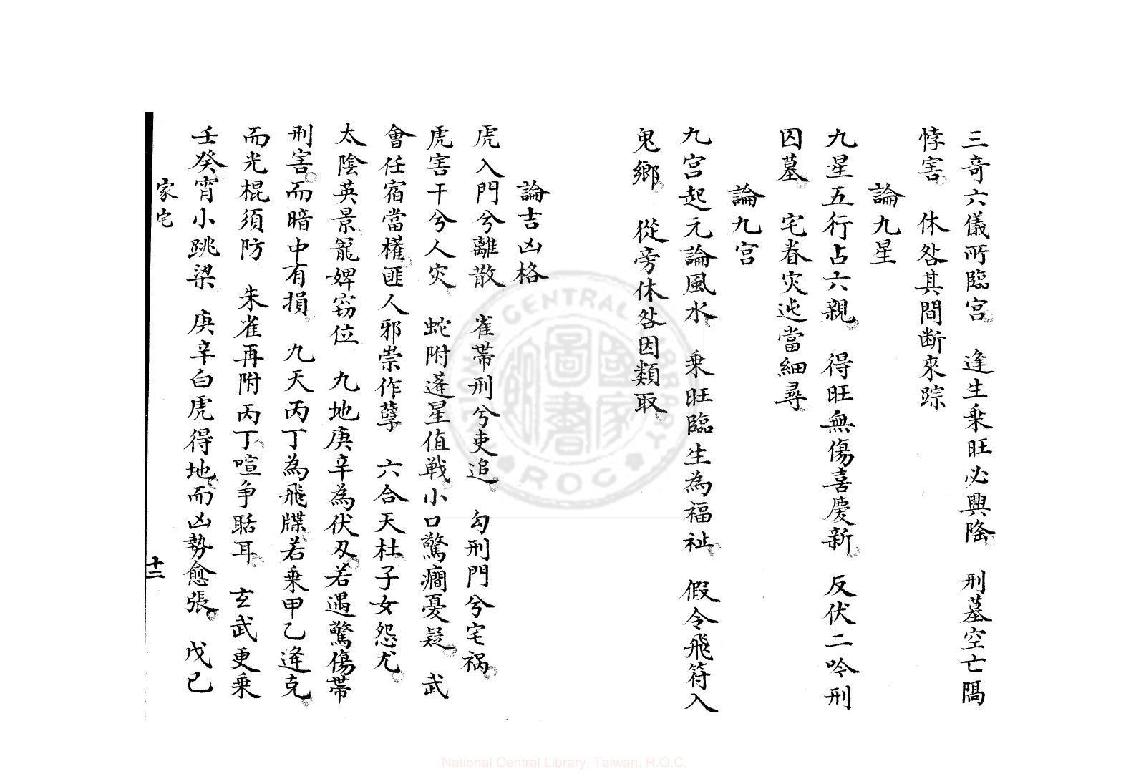 三奇六儀所臨宮　逢生乗旺必興隆　刑墓空亡隔
悖害　休咎其間断來踪
論九星
九星五行占六親　得旺無傷喜慶新　反伏二吟刑
囚墓　宅眷灾迍當細尋
論九宫
九宫起元論風水　乗旺臨生為福祉　假令飛符入
鬼鄉　從旁休咎因類取
論吉凶格
虎入門兮離散　雀帯刑兮吏追　勾刑門兮宅禍
虎害干兮人灾　蛇附蓬星值戰小口驚癎憂疑　武
會任宿當權匪人邪祟作孽　六合天柱子女怨尤
太陰英景寵婢窃位　九地庚辛為伏刄若遇驚傷帯
刑害而暗中有損　九天丙丁為飛牒若乗甲乙逢克
而光棍須防　朱雀再附丙丁喧争聒耳　玄武更乗
壬癸宵小跳梁　庚辛白虎得地而凶勢愈張　戊己
家宅
十二
National Central Library, Taiwan, R.O.C.